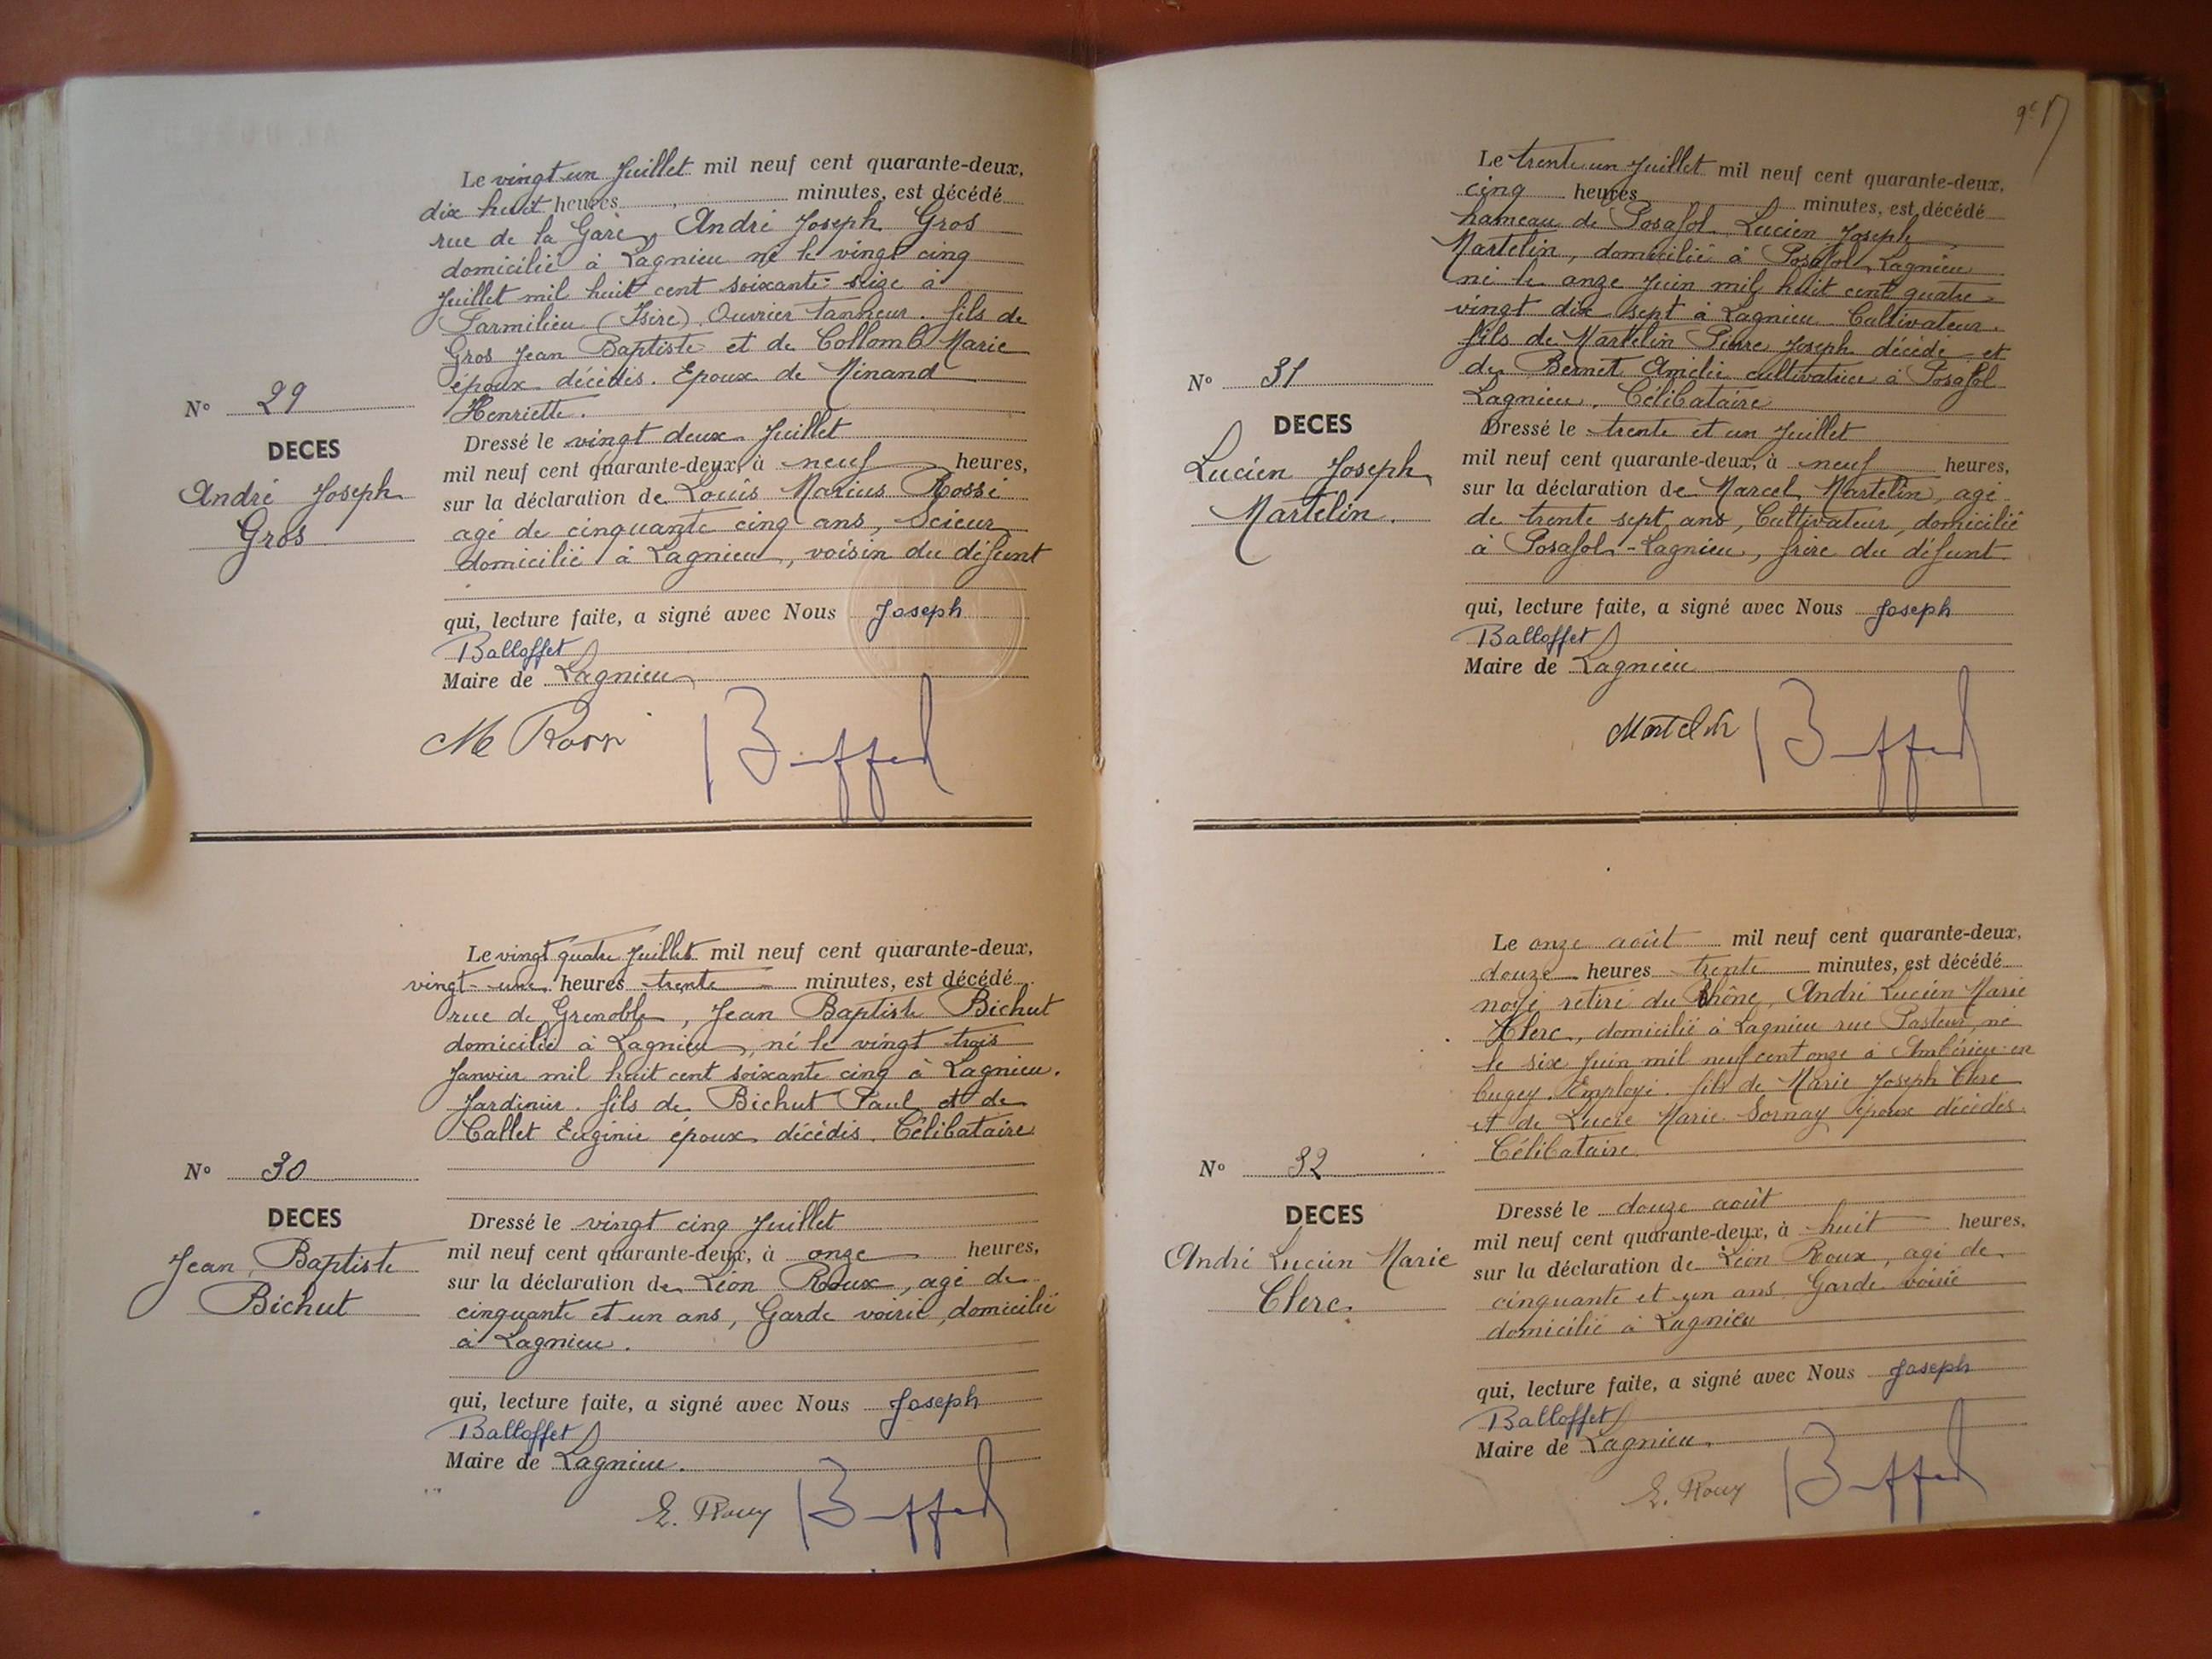 Le vingt-un Juillet mil neuf cent quarante-deux,
dix huit heures , minutes, est décédé
rue de la Gare, André Joseph Gros
domicilié à Lagnieu né le vingt cinq
Juillet mil huit cent soixante-seize à
Parmilieu (Isère). Ouvrier tanneur. fils de
Gros Jean Baptiste et de Collomb Marie
époux décédés. Epoux de Minand
Henriette.
N° 29
DECES
André Joseph
Gros
Dressé le vingt deux Juillet
mil neuf cent quarante-deux, à neuf heures,
sur la déclaration de Louis Marius Rossi
agé de cinquante cinq ans, Scieur
domicilié à Lagnieu, voisin du défunt
qui, lecture faite, a signé avec Nous Joseph
Balloffet
Maire de Lagnieu
M Rossi
Le vingt quatre Juillet mil neuf cent quarante-deux,
vingt-une heures trente minutes, est décédé
rue de Grenoble, Jean Baptiste Bichut
domicilié à Lagnieu, né le vingt trois
Janvier mil huit cent soixante cinq à Lagnieu.
Jardinier. fils de Bichut Paul et de
Callet Eugénie époux décédés. Célibataire
N° 30
DECES
Jean Baptiste
Bichut
Dressé le vingt cinq Juillet
mil neuf cent quarante-deux, à onze heures,
sur la déclaration de Léon Roux, agé de
cinquante et un ans, Garde voirie, domicilié
à Lagnieu.
qui, lecture faite, a signé avec Nous Joseph
Balloffet
Maire de Lagnieu.
L. Roux
Le trente un Juillet mil neuf cent quarante-deux,
cinq heures minutes, est décédé
hameau de Posafol Lucien Joseph
Martelin, domicilié à Posafol Lagnieu
né le onze Juin mil huit cent quatre-
vingt dix sept à Lagnieu. Cultivateur.
fils de Martelin Pierre Joseph décédé et
de Bernet Amélie cultivatrice à Posafol
Lagnieu. Célibataire
N° 31
DECES
Lucien Joseph
Martelin.
Dressé le trente et un Juillet
mil neuf cent quarante-deux, à neuf heures,
sur la déclaration de Marcel Martelin, agé
de trente sept ans, Cultivateur, domicilié
à Posafol-Lagnieu, frère du défunt
qui, lecture faite, a signé avec Nous Joseph
Balloffet
Maire de Lagnieu
Martelin
Le onze août mil neuf cent quarante-deux,
douze heures trente minutes, est décédé
noyé retiré du Rhône, André Lucien Marie
Clerc, domicilié à Lagnieu rue Pasteur, né
le six Juin mil neuf cent onze à Ambérieu-en
bugey. Employé. fils de Marie Joseph Clerc
et de Lucie Marie Sornay époux décédés.
Célibataire.
N° 32
DECES
André Lucien Marie
Clerc.
Dressé le douze août
mil neuf cent quarante-deux, à huit heures,
sur la déclaration de Léon Roux, agé de
cinquante et un ans Garde voirie
domicilié à Lagnieu
qui, lecture faite, a signé avec Nous Joseph
Balloffet
Maire de Lagnieu.
L. Roux